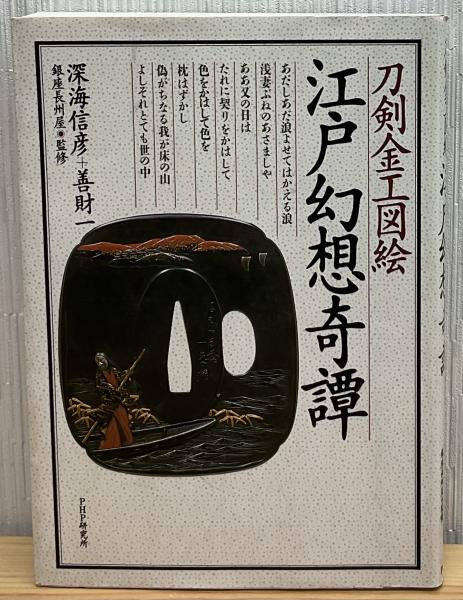 刀剣金工図絵
江戸幻想奇譚
あだしあだ浪よせてはかえる浪
浅妻ぶねのあさましや
ああ又の日は
たれに契りをかはして
色をかはして色を
枕はずかし
偽がちなる我が床の山
よしそれとても世の中
深海信彦+善財一
銀座長州屋◉監修
PHP研究所